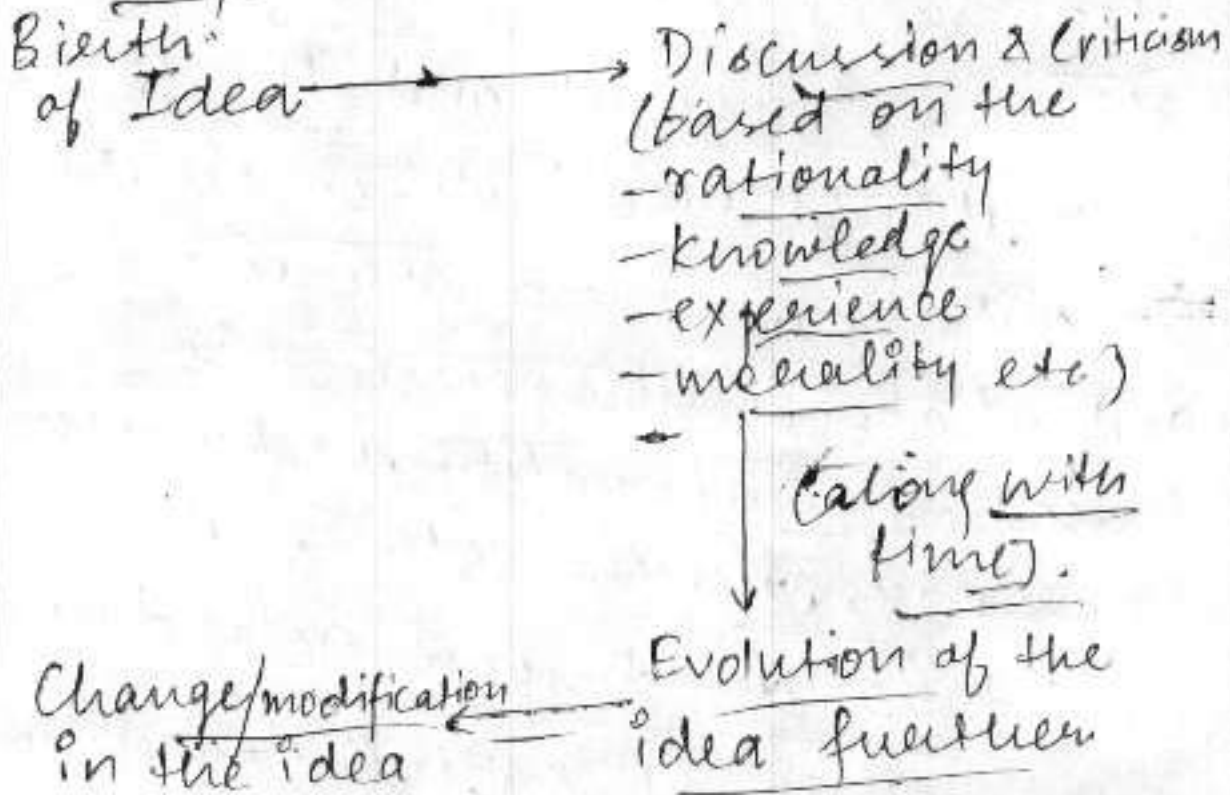 Birth
of Idea
Discussion & Criticism
(based on the
- rationality
- knowledge
- experience
- morality etc)
(along with
time).
Evolution of the
idea further
Change/modification
in the idea